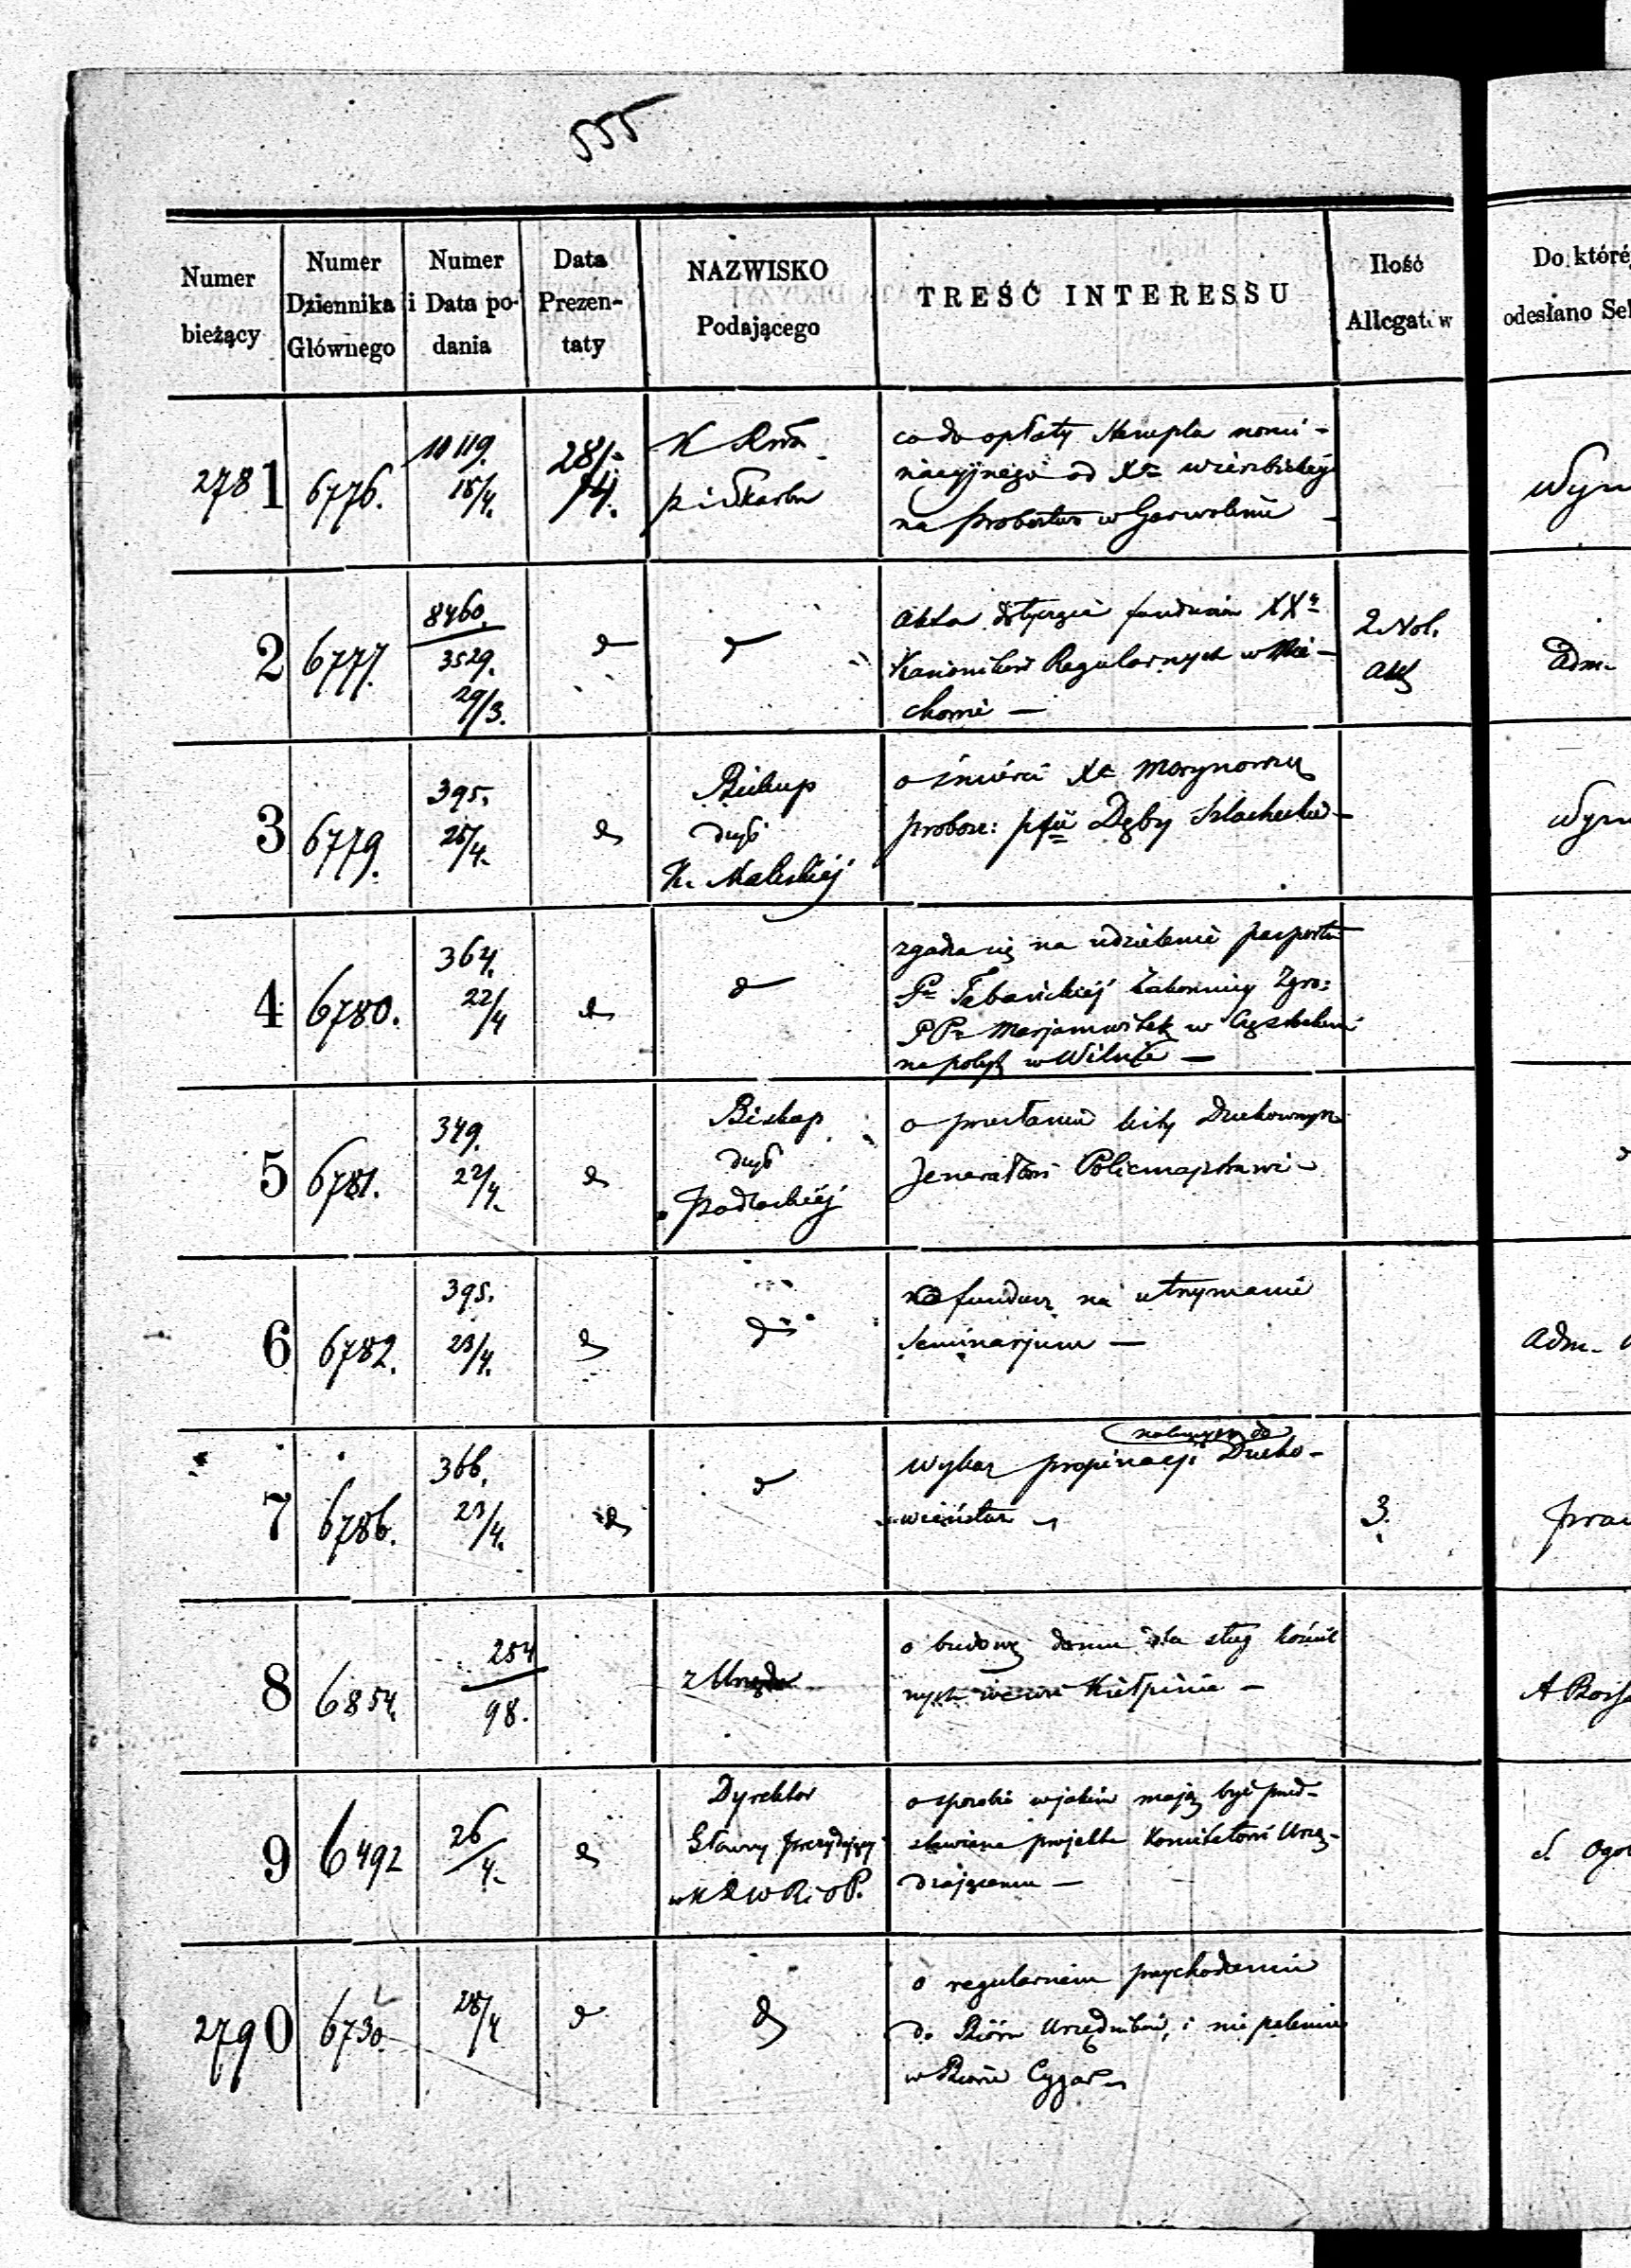 555
Numer bieżący
Numer Dziennika Głównego
Numer i Data podania
Data Prezentaty
NAZWISKO Podającego
TREŚĆ INTERESSU
Ilość Allegatów
Do któréj
odesłano Sek
2781
6776.
10119.
18/4.
28/4.
K Rwa
co do opłaty stempla nomi-
nacyjnego od Xa Wierzbickiego
na probostwo w Garwolinie
2
6777.
8460.
3529.
29/3.
d
d
akta dotyczące funduszu XXy
Kanoników Regularnych w Mie-
chowie —
2 Vol.
akt
adm-
3
6779.
395.
25/4.
d
Biskup
dyec
K. Kaliskiéj
o śmierci Xa
probosz: pfii Dęby Szlacheckie
4
6780.
364.
22/4
d
d
zgadza się na udzielenie paszportu
Zakonnicy Zgro:
PPn Marjawitek w Częstochowie
na pobyt w Wilnie —
5
6781.
349.
22/4.
d
Biskup
dyec
Podlaskiéj
o przesłaniu listy Duchownych
Jenerałowi Policmajstrowi
6
6782.
395.
23/4.
d
d
fundusz na utrzymanie
Seminarjum —
adm.
7
6786.
366.
23/4.
d
d
należącej do
Wykaz propinacji Ducho-
wieństwa
3.
8
6854.
254
98.
z Urzędu
o budowę domu dla sług kościel
nych we wsi Kiełpinie —
9
6492
26/4.
d
Dyrektor
Główny Prezydujący
w K R W R i O P.
o sposobie w jakim mają być przed-
stawiane projekta Komitetowi Urzą-
dzającemu —
2790
6730.
28/4
d
d
o regularnem przychodzeniu
do Biura Urzędników, i nie paleniu
w Biurze Cygar